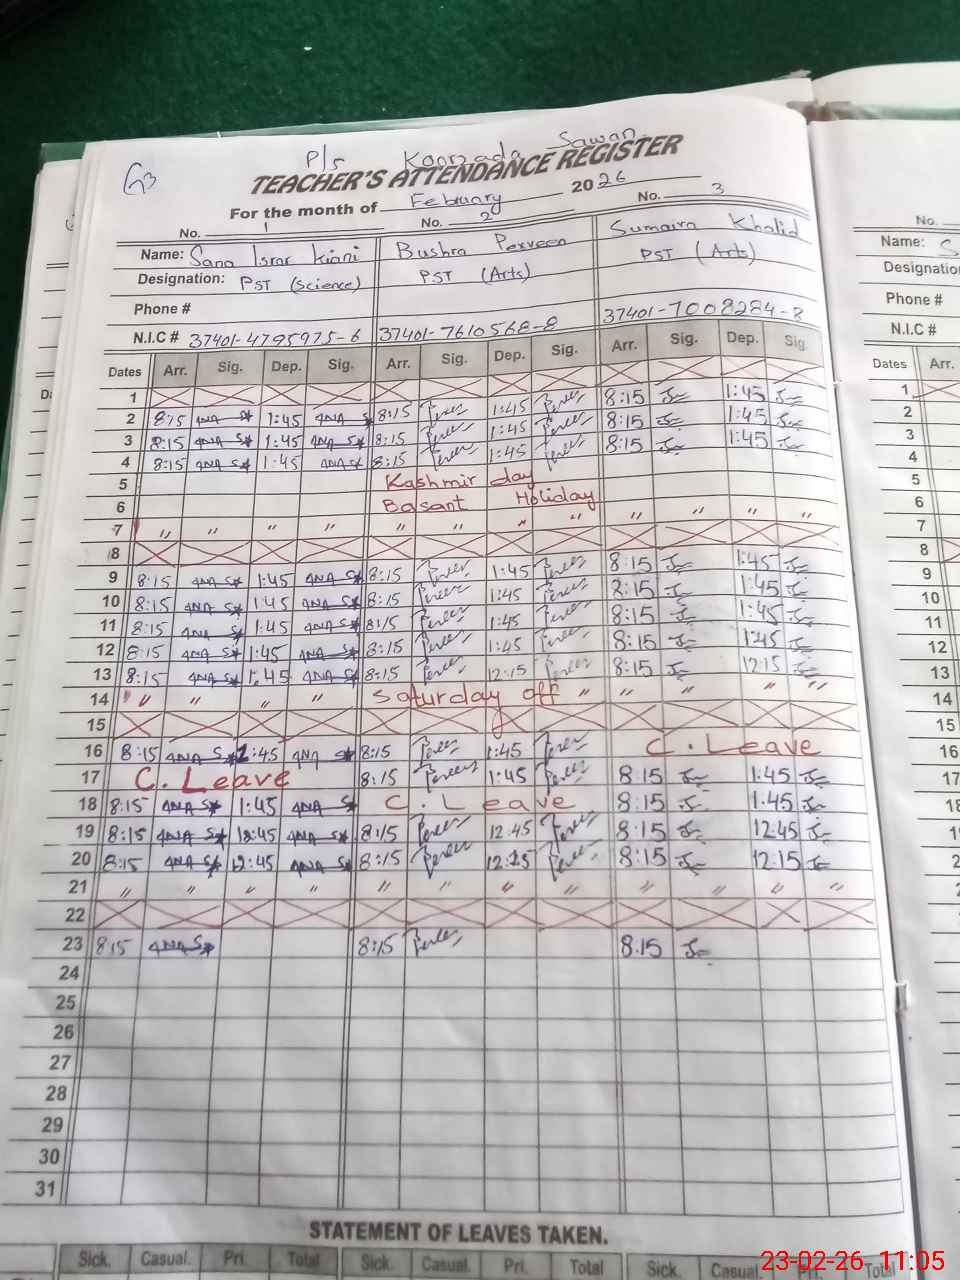 P/s Koonada Sawan
TEACHER'S ATTENDANCE REGISTER
For the month of February 2026
No. 1 No. 2 No. 3
Name: Sana Israr Kiani Bushra Perveen Sumaira Khalid
Designation: PST (Science) PST (Arts) PST (Arts)
Phone #
N.I.C # 37401-4795975-6 37401-7610568-8 37401-7008284-8
Dates Arr. Sig. Dep. Sig. Arr. Sig. Dep. Sig. Arr. Sig. Dep. Sig.
1
2 8:15 1:45 8:15 1:45 8:15 1:45
3 8:15 1:45 8:15 1:45 8:15 1:45
4 8:15 1:45 8:15 1:45 8:15 1:45
5 Kashmir day
6 Basant Holiday
7 " " " " " " " " " " " "
8
9 8:15 1:45 8:15 1:45 8:15 1:45
10 8:15 1:45 8:15 1:45 8:15 1:45
11 8:15 1:45 8:15 1:45 8:15 1:45
12 8:15 1:45 8:15 1:45 8:15 1:45
13 8:15 1:45 8:15 12:15 8:15 12:15
14 " " " " Saturday off " " " " "
15
16 8:15 1:45 8:15 1:45 C. Leave
17 C. Leave 8:15 1:45 8:15 1:45
18 8:15 1:45 C. Leave 8:15 1:45
19 8:15 12:45 8:15 12:45 8:15 12:45
20 8:15 12:45 8:15 8:15 12:15
21 " " " " " " " " " " " "
22
23 8:15 8:15 8:15
24
25
26
27
28
29
30
31
STATEMENT OF LEAVES TAKEN.
Sick. Casual. Pri. Total Sick. Casual. Pri. Total Sick. Casual. Total
No.
Name: S
Designation
Phone #
N.I.C #
Dates Arr.
1
2
3
4
5
6
7
8
9
10
11
12
13
14
15
16
17
18
19
23-02-26 11:05